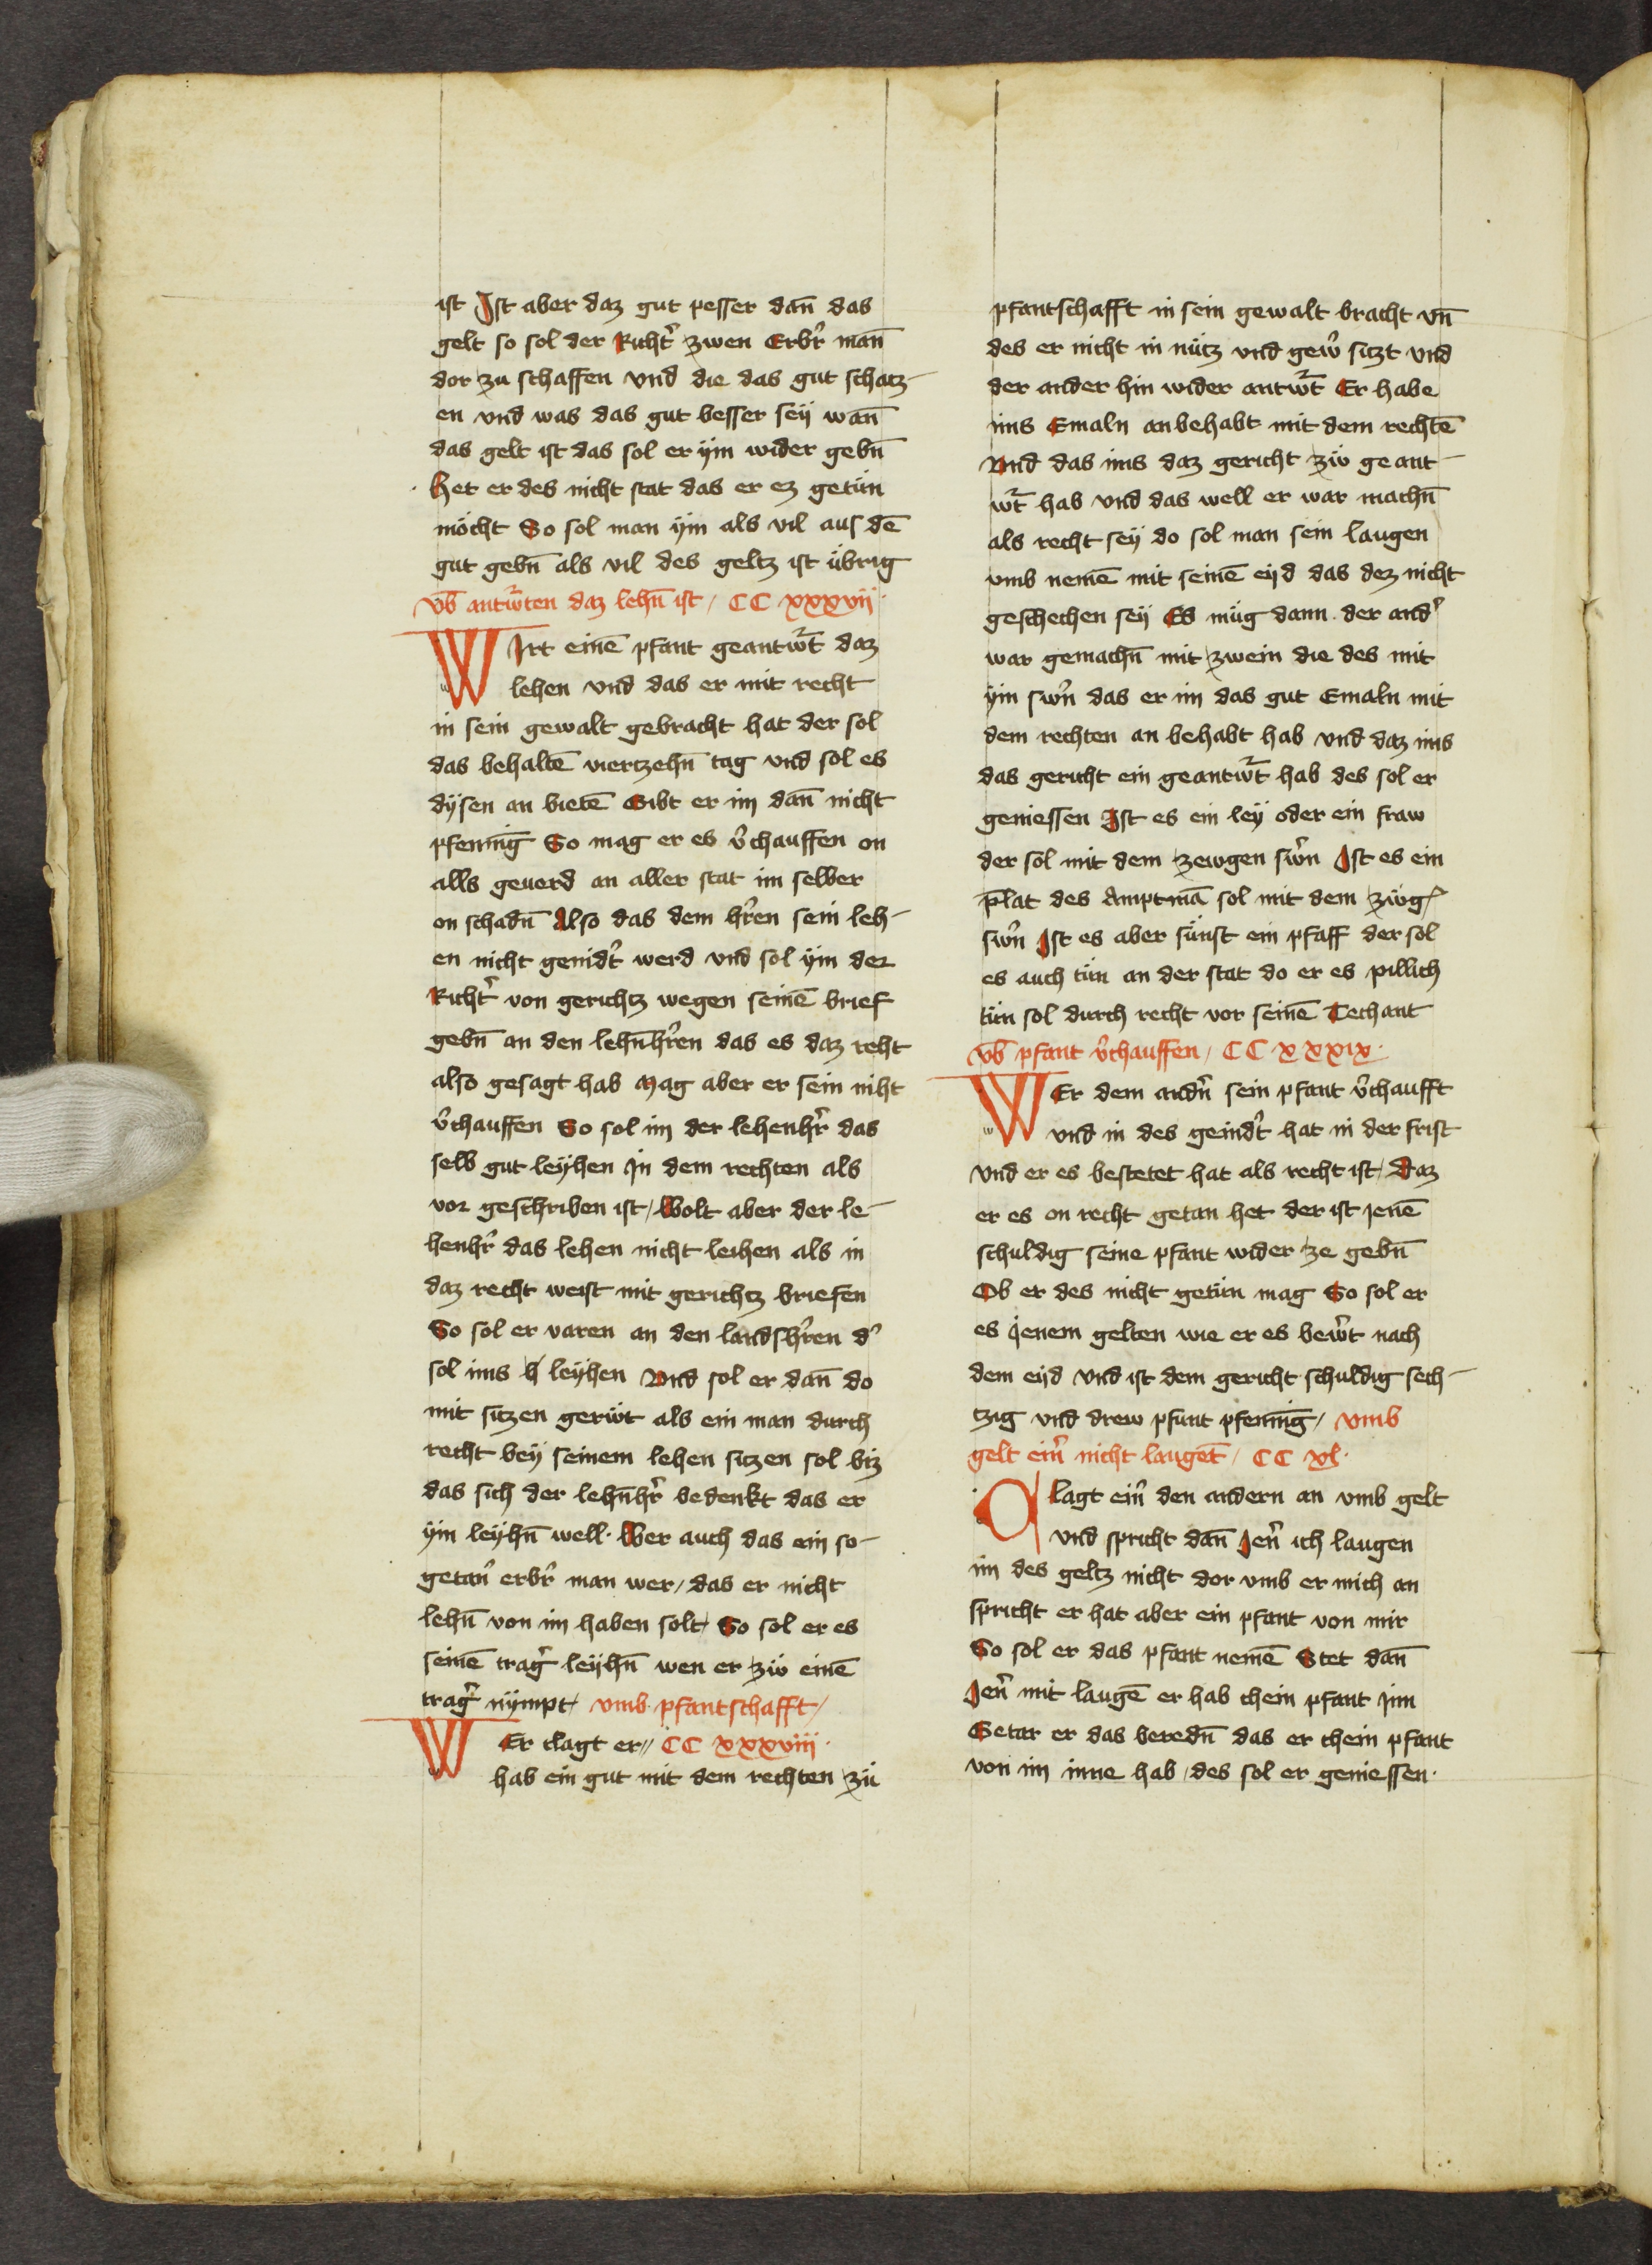 ist Ist aber daz gut pesser dan̄ das
gelt so sol der Richt᷑ zwen Erbr᷑ man̄
dor zu schaffen vnd die das gut schatz-
en vnd was das gut besser seÿ wan̄
das gelt ist das sol er ÿm wider gebn̄
Het er des nicht stat das er ez getün
möcht So sol man ÿm als vil aus dē
gut gebn̄ als vil des geltz ist übrig
Vb̄ antw̄rten daz lehn̄ ist / CC xxxvij ·
WIrt einē pfant geantw᷑t daz
lehen vnd das er mit recht
in sein gewalt gebracht hat der sol
das behaltē viertzehn̄ tag vnd sol es
dÿsen an bietē Gibt er im dan̄ nicht
pfennīg So mag er es v᷑chauffen on
alls geuerd an aller stat im selber
on schadn̄ Also das dem hr᷑en sein leh-
en nicht genidt᷑ werd vnd sol ÿm der
Richt᷑ von gerichtz wegen seinē brief
gebn̄ an den lehn̄hr᷑en das es daz reht
also gesagt hab Mag aber er sein niht
v᷑chauffen So sol im der lehenhr᷑ das
selb gut leÿhen In dem rechten als
vor geschriben ist / Wolt aber der le-
henhr᷑ das lehen nicht leihen als in
daz recht weist mit gerichtz briefen
So sol er varen an den landshr᷑en d᷑
sol ims leÿhen Vnd sol er dan̄ do
mit sitzen gerüt als ein man durch
recht beÿ seinem lehen sitzen sol biz
das sich der lehn̄hr᷑ bedenkt das er
ÿm leÿhn̄ well · Wer auch das ein so-
getan᷑ erbr᷑ man wer / das er nicht
lehn̄ von im haben solt / So sol er es
seinē trag᷑ leÿhn̄ wen er zü einē
trag᷑ nÿmpt / vmb pfantschafft /
WEr clagt er // CC xxxviij ·
hab ein gut mit dem rechten zü
pfantschafft in sein gewalt bracht vn̄
des er nicht in nütz vnd gew᷑ sitzt vnd
der ander hin wider antw᷑t Er habe
ims Emaln anbehabt mit dem rechtē
Vnd das ims daz gericht zü geant-
w᷑t hab vnd das well er war machn̄
als recht seÿ do sol man sein laugen
vmb nemē mit seinē eÿd das dez nicht
geschechen seÿ Es müg dann der and᷑
war gemachn̄ mit zwein die des mit
ÿm sw᷑n das er im das gut Emaln mit
dem rechten an behabt hab vnd daz ims
das gericht ein geantw᷑t hab des sol er
geniessen Ist es ein leÿ oder ein fraw
der sol mit dem zewgen sw᷑n Ist es ein
plat des Amptmā sol mit dem züg
sw᷑n Ist es aber sünst ein pfaff der sol
es auch tün an der stat do er es pillich
tün sol durch recht vor seinē Techant
Vb̄ pfant v᷑chauffen / CC xxxix ·
WEr dem andn᷑ sein pfant v᷑chaufft
vnd in des geindt᷑ hat in der frist
vnd er es bestetet hat als recht ist / Daz
er es on recht getan het der ist jenē
schuldig seine pfant wider ze gebn̄
Ob er des nicht getün mag So sol er
es jenem gelten wie er es bew᷑t nach
dem eÿd vnd ist dem gericht schuldig sech-
tzig vnd drew pfunt pfennīg / vmb
gelt ein᷑ nicht laugēt / CC xl ·
Clagt ein᷑ den andern an vmb gelt
vnd spricht dan̄ Jen᷑ ich laugen
im des geltz nicht dor vmb er mich an
spricht er hat aber ein pfant von mir
So sol er das pfant nemē Stet dan̄
Jen᷑ mit laugē er hab chein pfant Jnn
Getar er das beredn̄ das er chein pfant
von im inne hab / des sol er geniessen ·